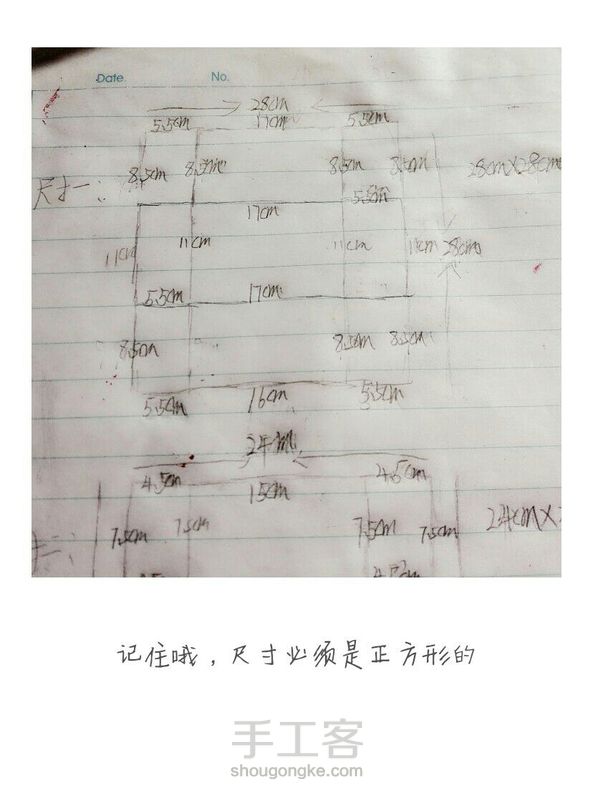 Date No.
28cm
5.5cm 17cm 5.5cm
8.5cm 8.5cm 8.5cm 8.5cm 28cm×28cm
尺寸一:
5.5cm
17cm
11cm 11cm 11cm 11cm 28cm
5.5cm 17cm
8.5cm 8.5cm 8.5cm
5.5cm 16cm 5.5cm
24cm
4.5cm 15cm 4.5cm
7.5cm 7.5cm 7.5cm 7.5cm 24cm×
记住哦，尺寸必须是正方形的
手工客
shougongke.com